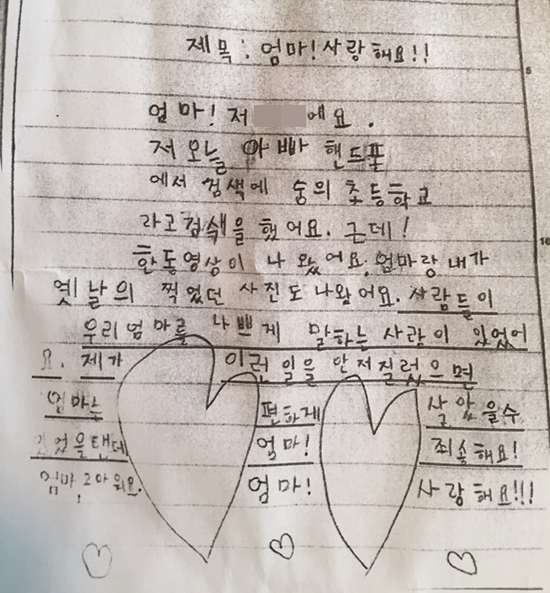 제목: 엄마! 사랑해요!!
엄마! 저 에요.
저 오늘 아빠 핸드폰
에서 검색에 숭의 초등학교
라고 검색을 했어요. 근데!
한 동영상이 나왔어요. 엄마랑 내가
옛날의 찍었던 사진도 나왔어요. 사람들이
우리 엄마를 나쁘게 말하는 사람이 있었어
요. 제가 이런 일을 안 저질렀으면
엄마는 편하게 살았을수
있었을탠데 엄마! 죄송해요!
엄마 고마워요. 엄마! 사랑해요!!!
5
10